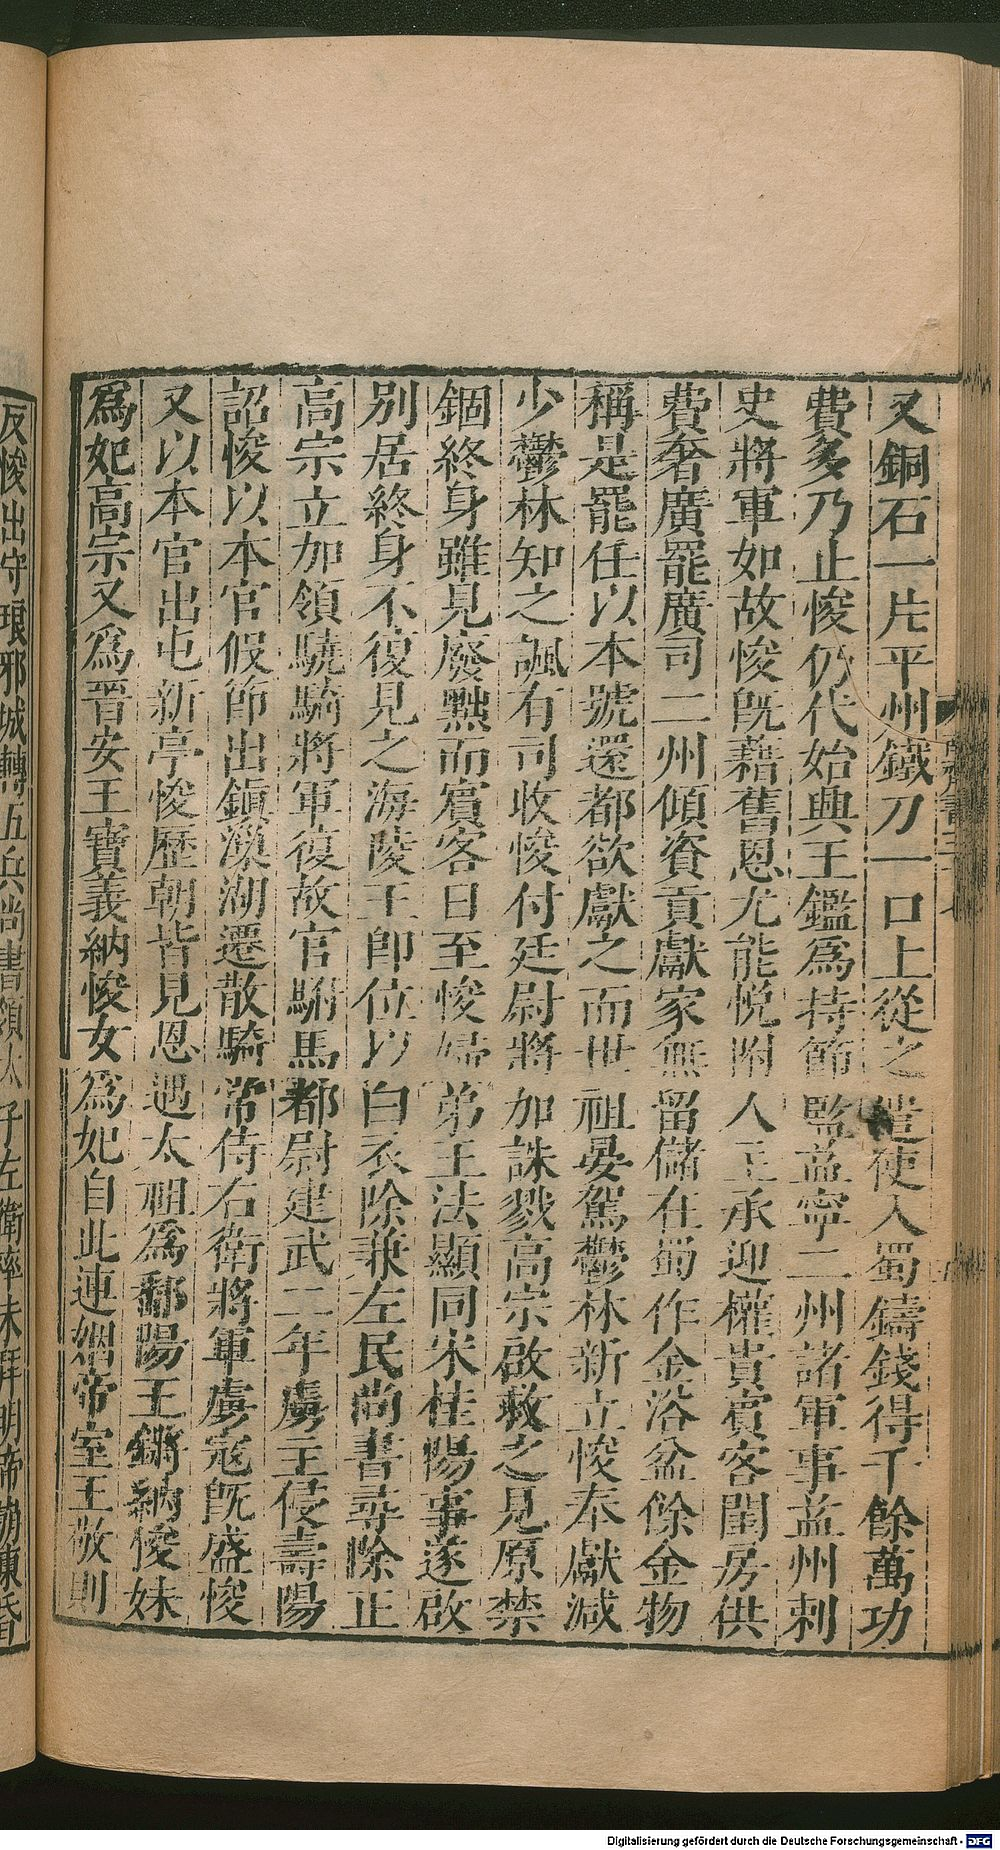 又銅石一片平州鐵刀一口上從之遣使入蜀鑄錢得千餘萬功
費多乃止悛仍代始興王鑑爲持節監益寧二州諸軍事益州刺
史將軍如故悛旣藉舊恩尤能悅附人主承迎權貴賓客閨房供
費奢廣罷廣司二州傾資貢獻家無留儲在蜀作金浴盆餘金物
稱是罷任以本號還都欲獻之而世祖晏駕鬱林新立悛奉獻減
少鬱林知之諷有司收悛付廷尉將加誅戮高宗啟救之見原禁
錮終身雖見廢黜而賓客日至悛婦弟王法顯同宋桂陽事遂啟
別居終身不復見之海陵王卽位以白衣除兼左民尚書尋除正
高宗立加領驍騎將軍復故官駙馬都尉建武二年虜主侵壽陽
詔悛以本官假節出鎭漅湖遷散騎常侍右衛將軍虜寇旣盛悛
又以本官出屯新亭悛歷朝皆見恩遇太祖爲鄱陽王鏘納悛妹
爲妃高宗又爲晉安王寶義納悛女爲妃自此連姻帝室王敬則
反悛出守琅邪城轉五兵尚書領太子左衛率未拜明帝崩東昏
Digitalisierung gefördert durch die Deutsche Forschungsgemeinschaft - DFG